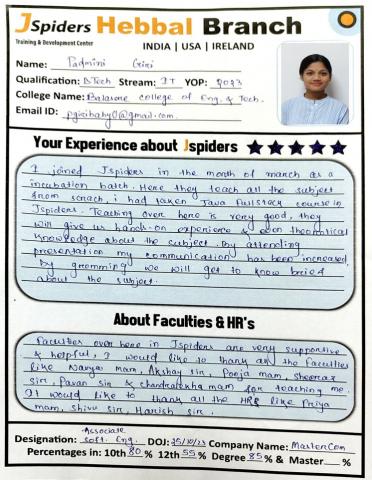 JSpiders Hebbal Branch
Training & Development Center
INDIA | USA | IRELAND
Name: Padmini Giri
Qualification: BTech Stream: IT YOP: 2023
College Name: Balasore college of Eng. & Tech.
Email ID: pgiribaby0@gmail.com
Your Experience about Jspiders
I joined Jspiders in the month of march as a
incubation batch. Here they teach all the subject
from scrach, i had taken Java Fullstack course in
Jspiders. Teaching over here is very good, they
will give us hands-on experience & even theoritical
knowledge about the subject. By attending
presentation my communication has been increased,
by gromming we will get to know brief
about the subject.
About Faculties & HR's
Faculties over here in Jspiders are very supportive
& helpful, I would like to thank all the Faculties
like Navya mam, Akshay sir, Pooja mam,
sir, Pavan sir & chandralekha mam for teaching me.
I would like to thank all the HRs like Priya
mam, Shivu sir, Harish sir.
Associate
Designation: Soft. Eng. DOJ: 25/10/23 Company Name: MasterCom
Percentages in: 10th 80 % 12th 55 % Degree 85 % & Master %